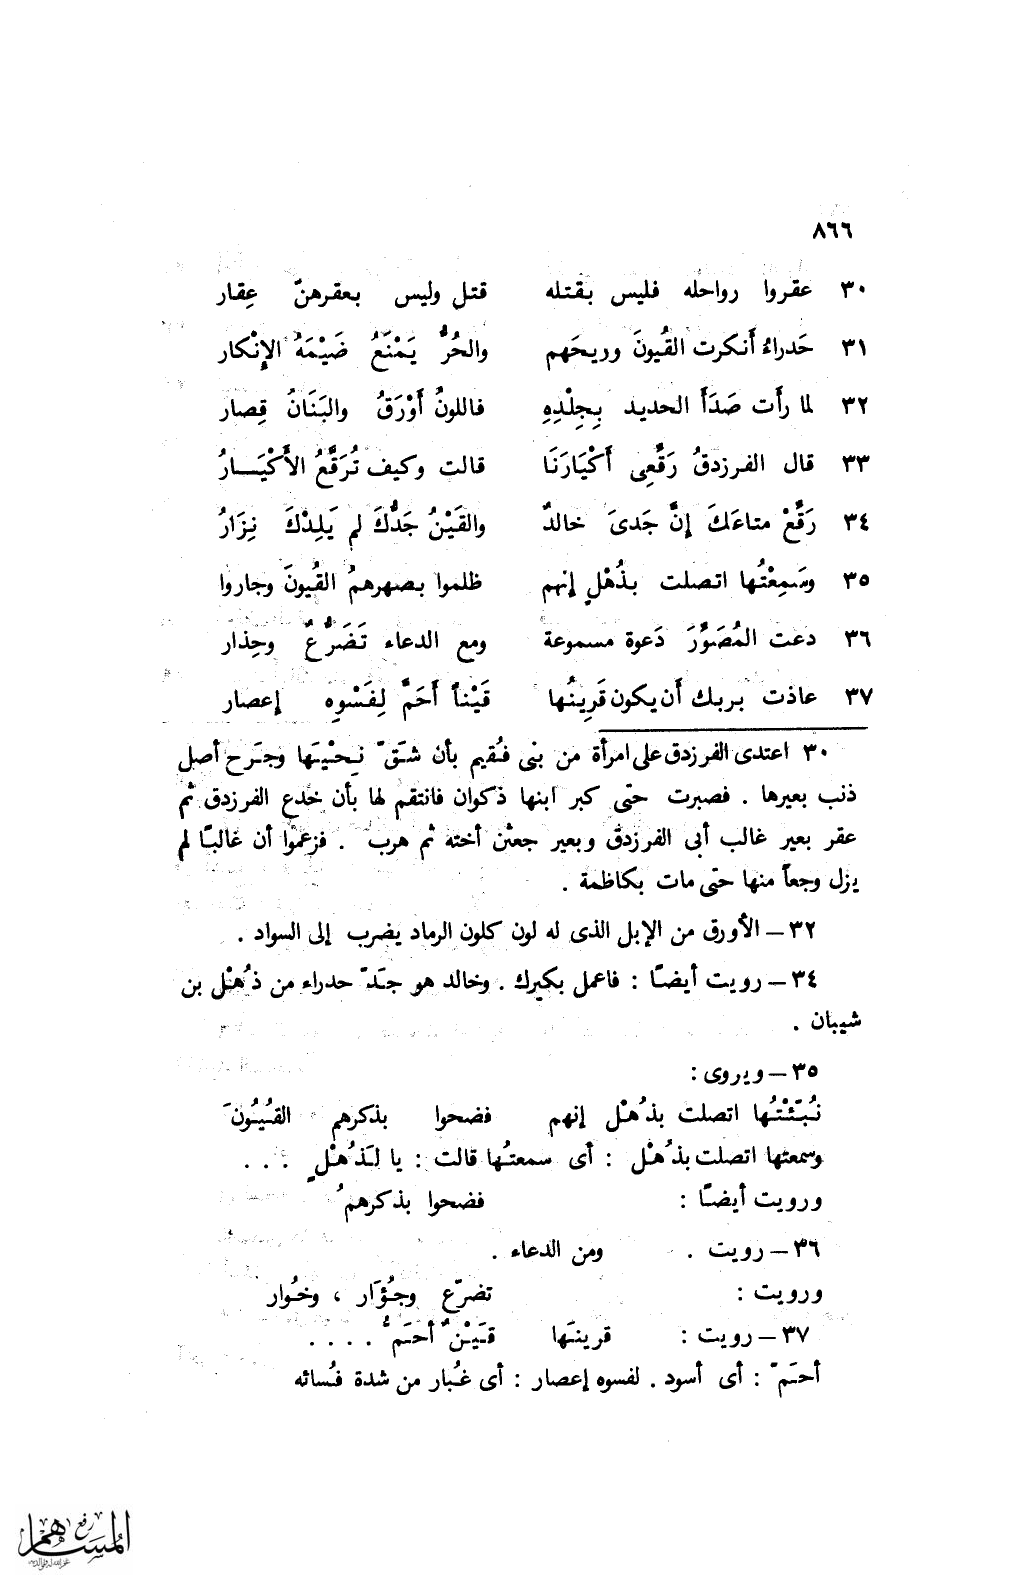 ٨٦٦
٣٠ عقروا رواحله فليس بقتله قتل وليس بعقرهنّ عِقار
٣١ حَدراءُ أَنكرت القُيونَ وريحَهم والحُرُّ يَمْنَعُ ضَيْمَهُ الإِنْكار
٣٢ لما رأَت صَدَأَ الحديد بِجِلْدِهِ فاللونُ أَوْرَقُ والبَنَانُ قِصار
٣٣ قال الفرزدقُ رَقِّعِى أَكْيَارَنَا قالت وكيف تُرَقَّعُ الأَكْيَــارُ
٣٤ رَقِّعْ متاعَكَ إِنَّ جَدىَ خالدٌ والقَيْنُ جَدُّكَ لم يَلِدْكَ نِزَارُ
٣٥ وسَمِعْتُها اتصلت بذُهْلٍ إِنهم ظلموا بصهرهمُ القُيونَ وجاروا
٣٦ دعت المُصَوِّرَ دَعوة مسموعة ومع الدعاء تَضَرُّعٌ وحِذار
٣٧ عاذت بربك أَن يكون قَرِينُها قَيْناً أَحَمَّ لِفَسْوِه إعصار
٣٠ اعتدى الفرزدق على امرأة من بنى فُقيم بأن شَقّ نِحْيَيها وجَرح أصل
ذنب بعيرها . فصبرت حتى كبر ابنها ذكوان فانتقم لها بأن خدع الفرزدق ثم
عقر بعير غالب أبى الفرزدق وبعير جعثن أخته ثم هرب . فزعموا أن غالبًا لم
يزل وجعاً منها حتى مات بكاظمة .
٣٢ – الأورق من الإبل الذى له لون كلون الرماد يضرب إلى السواد .
٣٤ – رويت أيضًا : فاعمل بكيرك . وخالد هو جَدّ حدراء من ذُهْل بن
شيبان .
٣٥ – ويروى :
نُبّئْتُها اتصلت بذُهْل إنهم فضحوا بذكرهم القُيُونَ
وسمعتها اتصلت بذُهْل : أى سمعتُها قالت : يا لَذُهْلٍ . . .
ورويت أيضًا : فضحوا بذكرهمُ
٣٦ – رويت . ومن الدعاء .
ورويت : تضرّع وجُؤَار ، وخُوار
٣٧ – رويت : قرينَها قَيْنٌ أحَمُّ . . . .
أحَمّ : أى أسود . لفسوه إعصار : أى غُبار من شدة فُسائه
المساهم
رفع